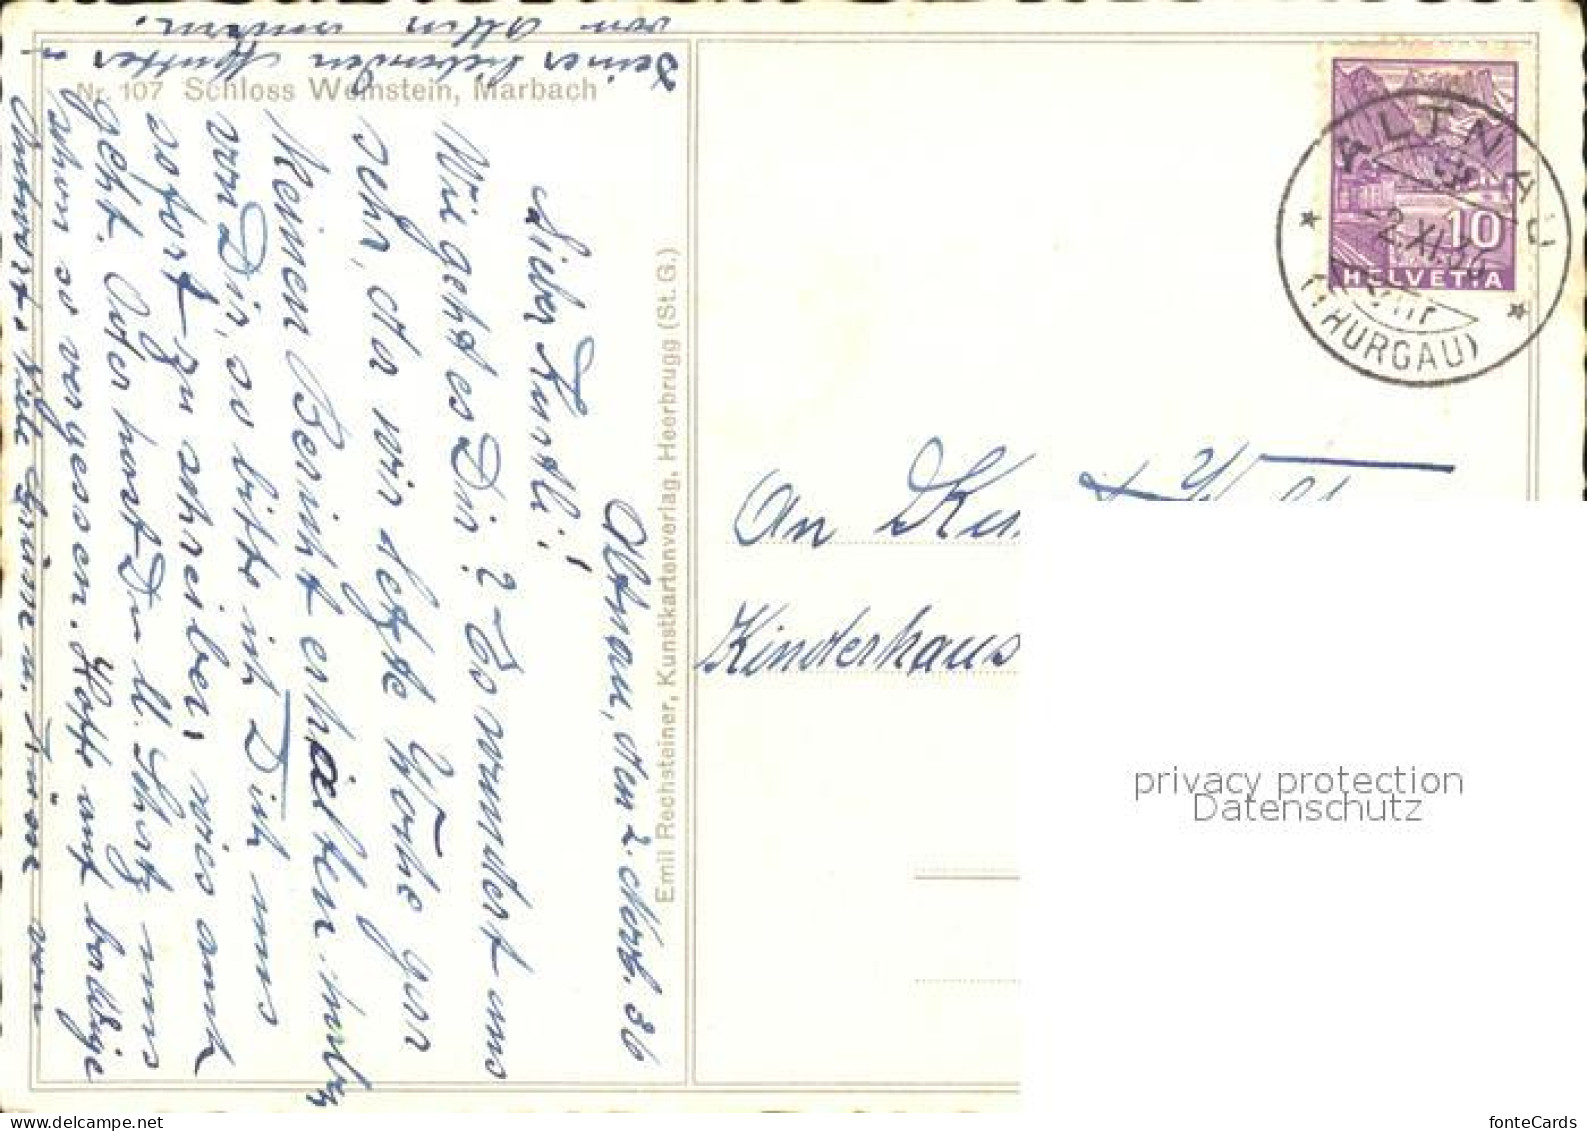 Nr. 107 Schloss Weinstein, Marbach
Emil Rechsteiner, Kunstkartenverlag, Heerbrugg (St. G.)
Altnau, den 2. Nov. 36
Lieber Kurtli!
Wie geht es Dir? Es wundert uns
sehr, da wir letzte Woche gar
keinen Bericht erhalten haben
von Dir, so bitte ich Dich uns
sofort zu schreiben, wies auch
geht. Oder hast Du uns
schon so vergessen. Hoffe auf baldige
Antwort. Viele Grüsse u. Küsse von
Deiner liebenden Mutter &
von allen
ALTNAU
-2.XI.36
(THURGAU)
10
HELVETIA
An
Kinderhaus
privacy protection
Datenschutz
fonteCards